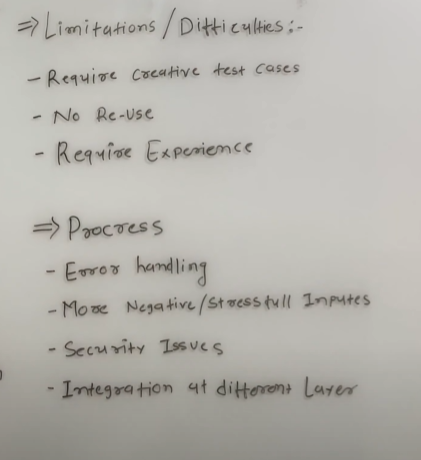 ⇒ Limitations / Difficulties :-
- Require Creative test cases
- No Re-Use
- Require Experience
⇒ Process
- Error handling
- More Negative/Stressfull Inputes
- Security Issues
- Integration at different Layer